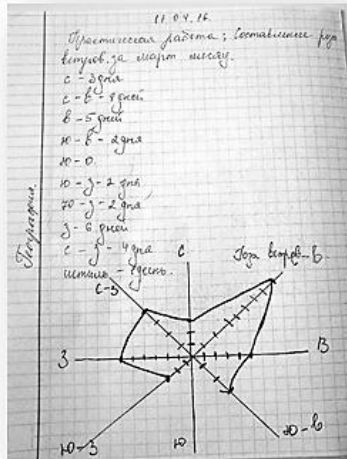 11.04.16.
Практическая работа; Составление роза
ветров. за март месяц.
С - 3 дня
С - В - 9 дней
В - 5 дней
Ю - В - 2 дня
Ю - 0.
Ю - З - 2 дня
Ю - З - 2 дня
З - 6 дней
С - З - 4 дня
штиль -
География.
С
Роза ветров-В.
С-З
З
В
Ю-З
Ю
Ю-В